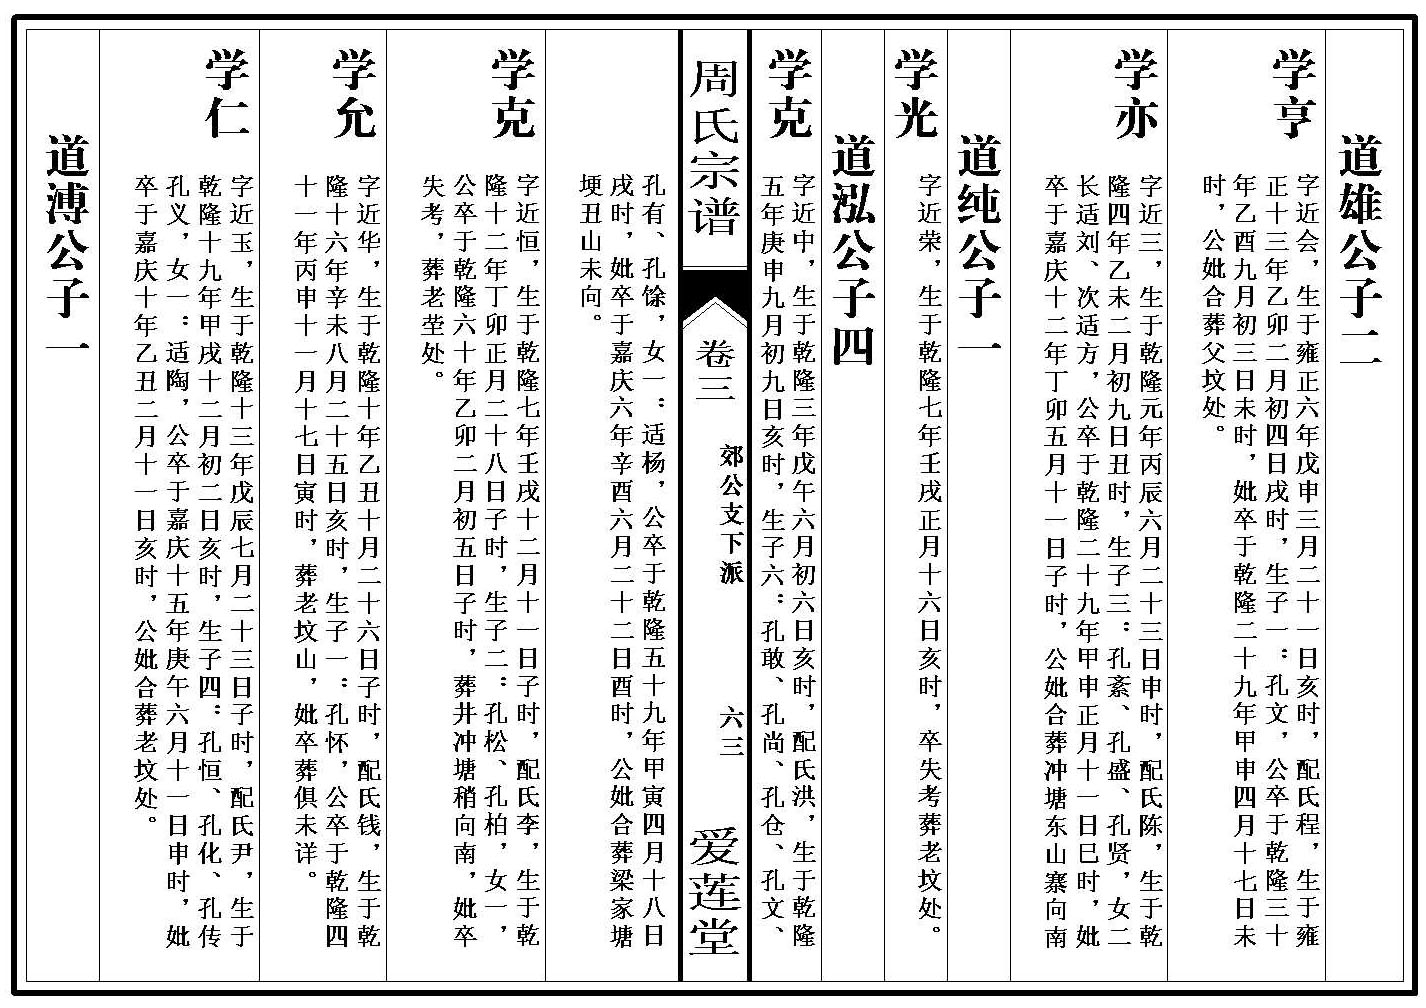 道雄公子二
学亨
字近会，生于雍正六年戊申三月二十一日亥时，配氏程，生于雍
正十三年乙卯二月初四日戌时，生子一：孔文，公卒于乾隆三十
年乙酉九月初三日未时，妣卒于乾隆二十九年甲申四月十七日未
时，公妣合葬父坟处。
学亦
字近三，生于乾隆元年丙辰六月二十三日申时，配氏陈，生于乾
隆四年乙未二月初九日丑时，生子三：孔紊、孔盛、孔贤，女二
长适刘、次适方，公卒于乾隆二十九年甲申正月十一日巳时，妣
卒于嘉庆十二年丁卯五月十一日子时，公妣合葬冲塘东山寨向南
道纯公子一
学光
字近荣，生于乾隆七年壬戌正月十六日亥时，卒失考葬老坟处。
道泓公子四
学克
字近中，生于乾隆三年戊午六月初六日亥时，配氏洪，生于乾隆
五年庚申九月初九日亥时，生子六：孔敢、孔尚、孔仓、孔文、
周氏宗谱
卷三
郊公支下派
六三
爱莲堂
孔有、孔馀，女一：适杨，公卒于乾隆五十九年甲寅四月十八日
戌时，妣卒于嘉庆六年辛酉六月二十二日酉时，公妣合葬梁家塘
埂丑山未向。
学克
字近恒，生于乾隆七年壬戌十二月十一日子时，配氏李，生于乾
隆十二年丁卯正月二十八日子时，生子二：孔松、孔柏，女一，
公卒于乾隆六十年乙卯二月初五日子时，葬井冲塘稍向南，妣卒
失考，葬老茔处。
学允
字近华，生于乾隆十年乙丑十月二十六日子时，配氏钱，生于乾
隆十六年辛未八月二十五日亥时，生子一：孔怀，公卒于乾隆四
十一年丙申十一月十七日寅时，葬老坟山，妣卒葬俱未详。
学仁
字近玉，生于乾隆十三年戊辰七月二十三日子时，配氏尹，生于
乾隆十九年甲戌十二月初二日亥时，生子四：孔恒、孔化、孔传
孔义，女一：适陶，公卒于嘉庆十五年庚午六月十一日申时，妣
卒于嘉庆十年乙丑二月十一日亥时，公妣合葬老坟处。
道溥公子一